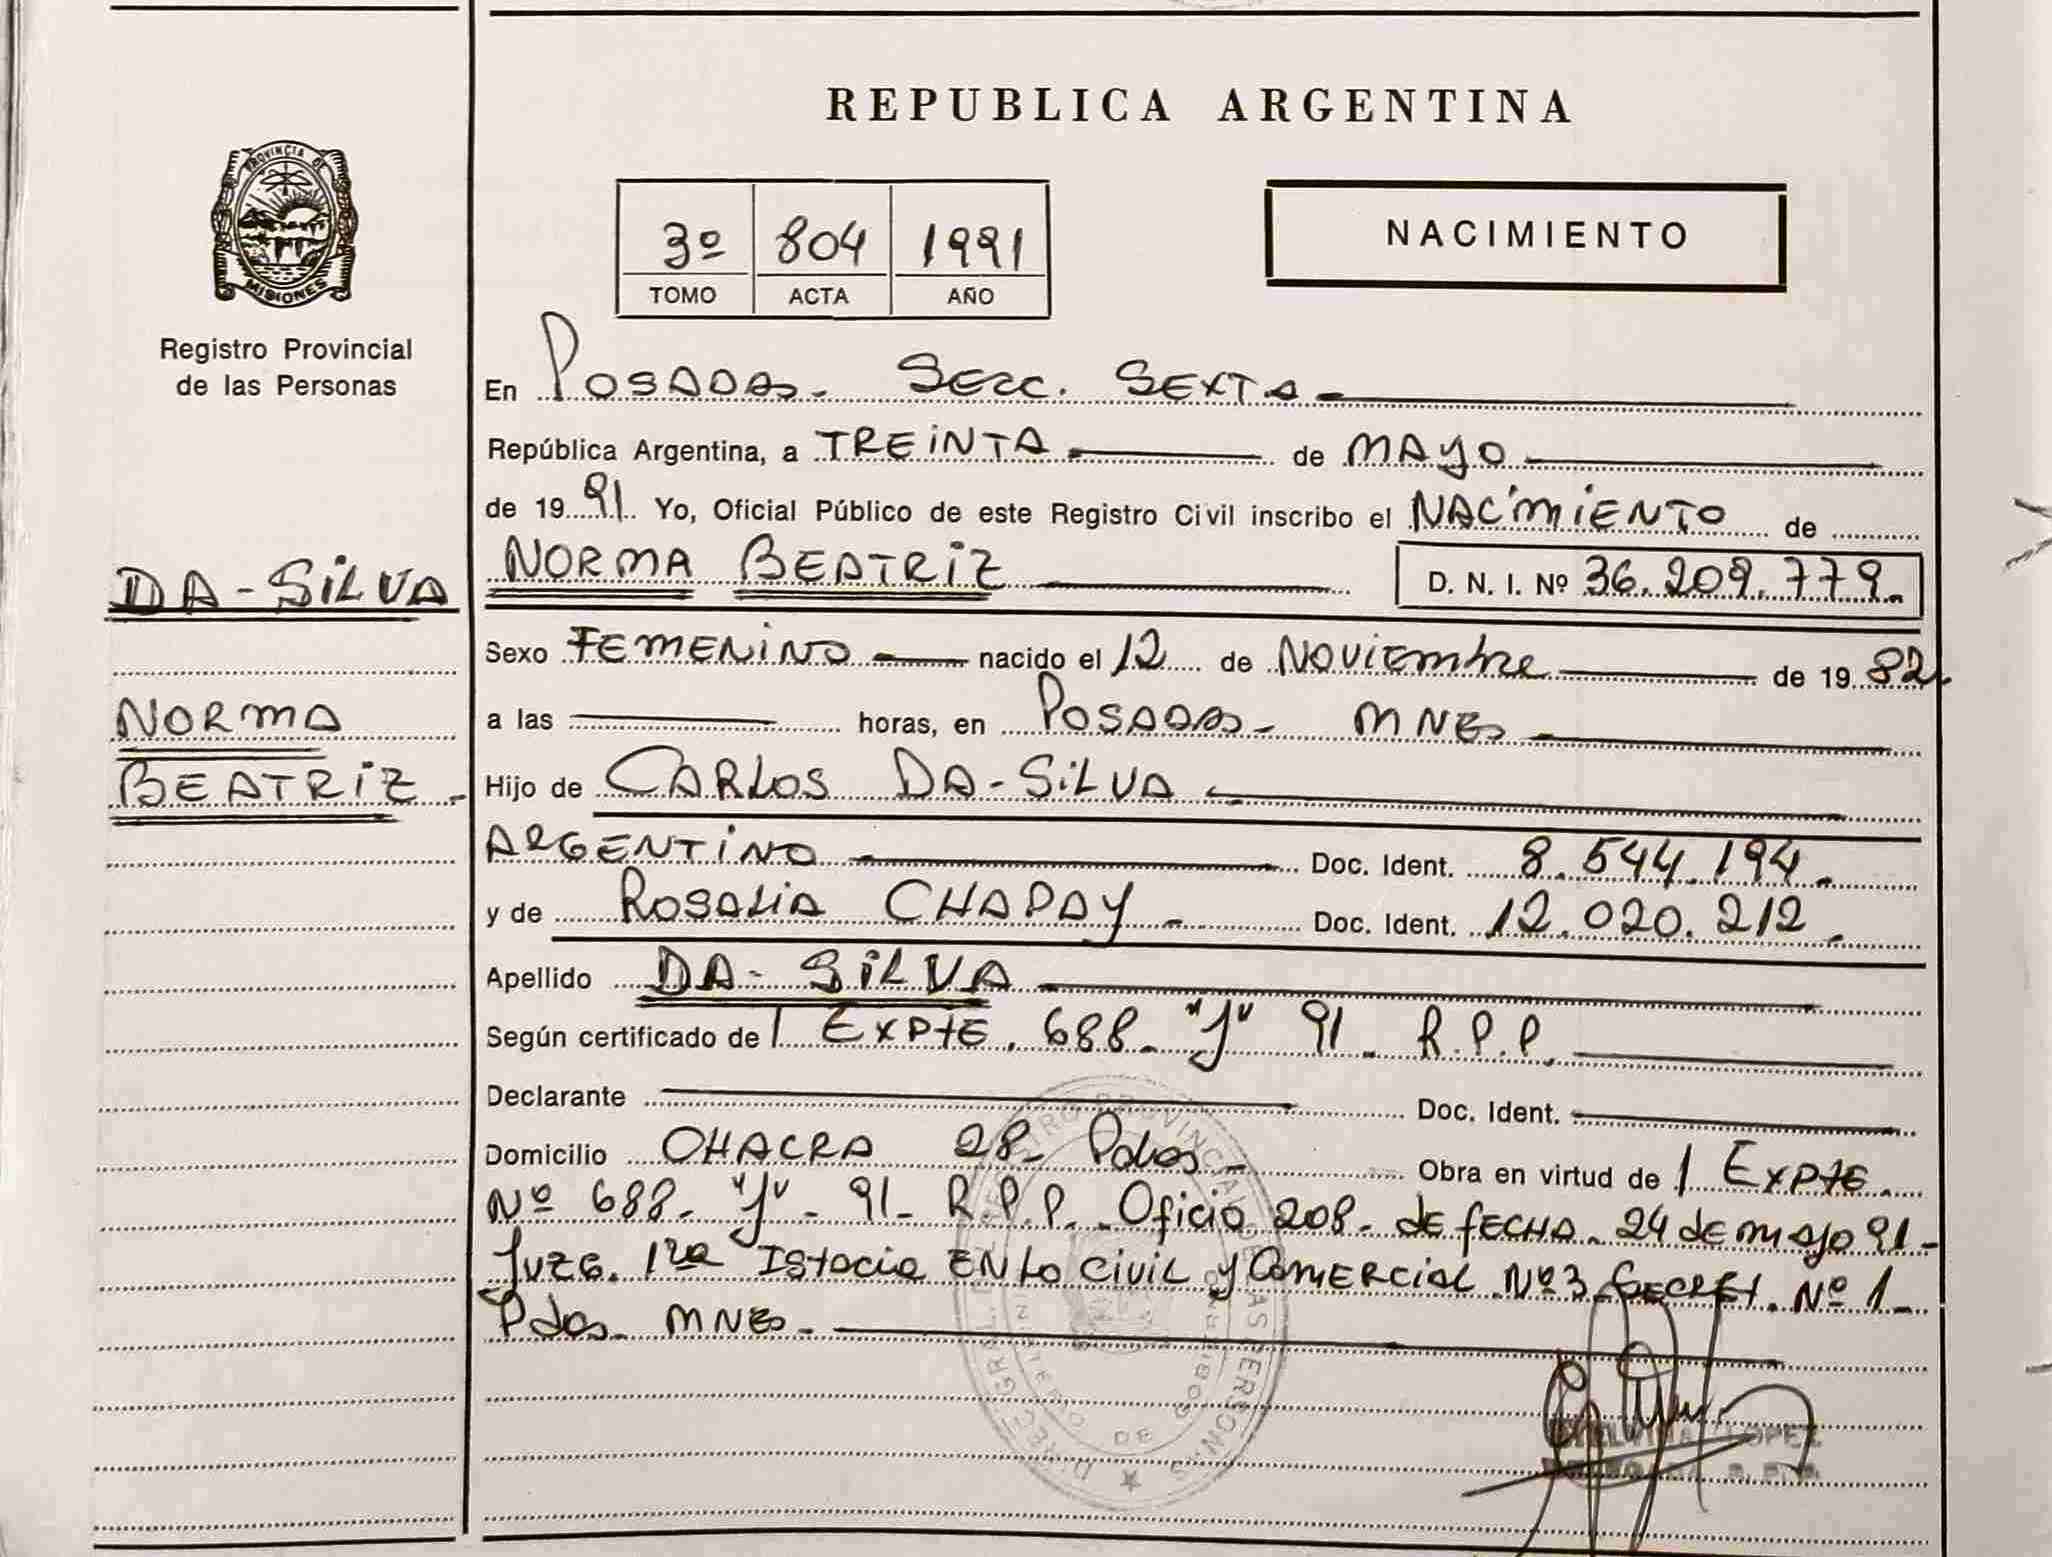 REPUBLICA ARGENTINA
PROVINCIA DE
MISIONES
Registro Provincial
de las Personas
3º 804 1991
TOMO ACTA AÑO
NACIMIENTO
En POSADAS - SECC. SEXTA -
República Argentina, a TREINTA de MAYO
de 1991 Yo, Oficial Público de este Registro Civil inscribo el NACIMIENTO de
DA-SILVA
NORMA BEATRIZ D. N. I. Nº 36.209.779.
Sexo FEMENINO nacido el 12 de Noviembre de 1982.
NORMA
a las horas, en POSADAS - MNES
BEATRIZ -
Hijo de CARLOS DA-SILVA
ARGENTINO Doc. Ident. 8.544.194.
y de ROSALIA CHAPAY - Doc. Ident. 12.020.212.
Apellido DA-SILVA
Según certificado de 1 EXPTE. 688 - "J" 91 - R.P.P.
Declarante Doc. Ident.
Domicilio CHACRA 28 - Pdas - Obra en virtud de 1 EXPTE.
Nº 688 - "J" - 91 - R.P.P. - Oficio 208 - de FECHA - 24 de mayo 91 -
Juzg. 1ra Istacia EN lo civil y Comercial Nº 3 Secret. Nº 1 -
Pdas. MNES -
LOPEZ